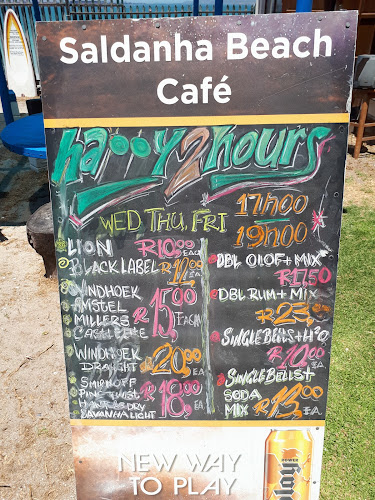 Saldanha Beach
Café
happy 2 hours
WED THU, FRI
17h00
19h00
LION R10.00 EACH
BLACK LABEL R12.00 EA
WINDHOEK
AMSTEL
MILLERS
CASTLE LITE
R15.00 EACH
WINDHOEK
DRAUGHT
R20.00 EA
SMIRNOFF
PINE TWIST
HUNTERS DRY
SAVANHA LIGHT
R18.00 EA
DBL OLOF + MIX
R17.50
DBL RUM + MIX
R23.00 EA
SINGLE BELLS + H²O
R10.00 EA
SINGLE BELLS +
SODA
MIX R13.00 EA
NEW WAY
TO PLAY
POWER
play